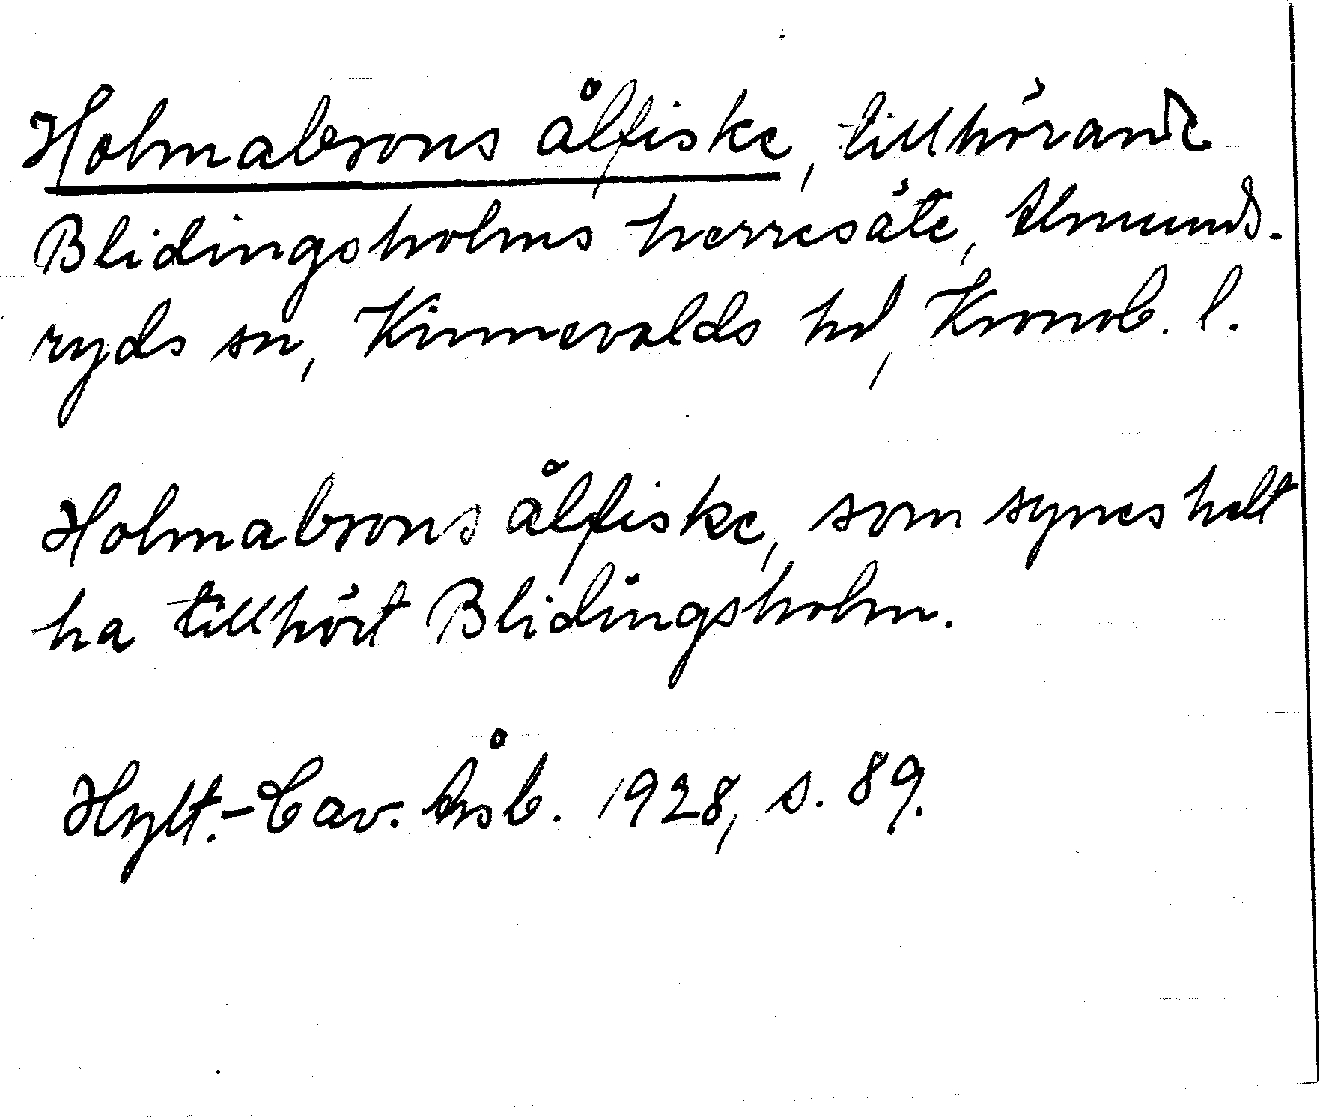 Holmabrons ålfiske, tillhörande
Blidingsholms herresäte, Almunds-
ryds sn, Kinnevalds hd, Kronob. l.
Holmabrons ålfiske, som synes helt
ha tillhört Blidingsholm.
Hylt.-Cav. Åsb. 1928, s. 89.